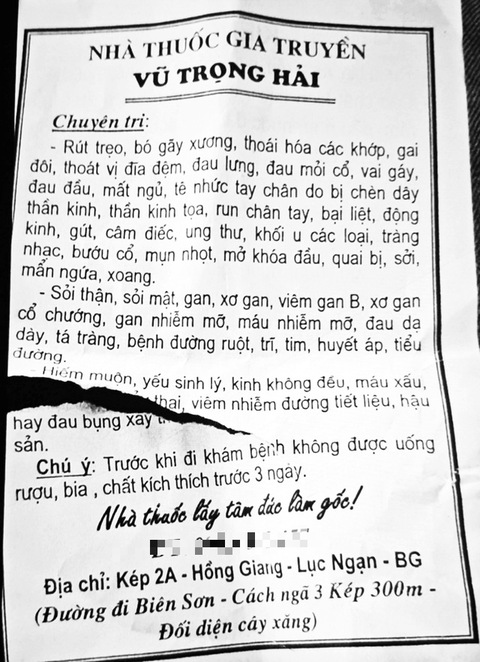 NHÀ THUỐC GIA TRUYỀN
VŨ TRỌNG HẢI
Chuyên trị:
- Rút trẹo, bó gãy xương, thoái hóa các khớp, gai
đôi, thoát vị đĩa đệm, đau lưng, đau mỏi cổ, vai gáy,
đau đầu, mất ngủ, tê nhức tay chân do bị chèn dây
thần kinh, thần kinh tọa, run chân tay, bại liệt, động
kinh, gút, câm điếc, ung thư, khối u các loại, tràng
nhạc, bướu cổ, mụn nhọt, mở khóa đầu, quai bị, sởi,
mẩn ngứa, xoang.
- Sỏi thận, sỏi mật, gan, xơ gan, viêm gan B, xơ gan
cổ chướng, gan nhiễm mỡ, máu nhiễm mỡ, đau dạ
dày, tá tràng, bệnh đường ruột, trĩ, tim, huyết áp, tiểu
đường.
- Hiếm muộn, yếu sinh lý, kinh không đều, máu xấu,
thai, viêm nhiễm đường tiết liệu, hậu
sản.
hay đau bụng xảy
Chú ý: Trước khi đi khám bệnh không được uống
rượu, bia , chất kích thích trước 3 ngày.
Nhà thuốc lấy tâm đức làm gốc!
Địa chỉ: Kép 2A - Hồng Giang - Lục Ngạn - BG
(Đường đi Biên Sơn - Cách ngã 3 Kép 300m -
Đối diện cây xăng)